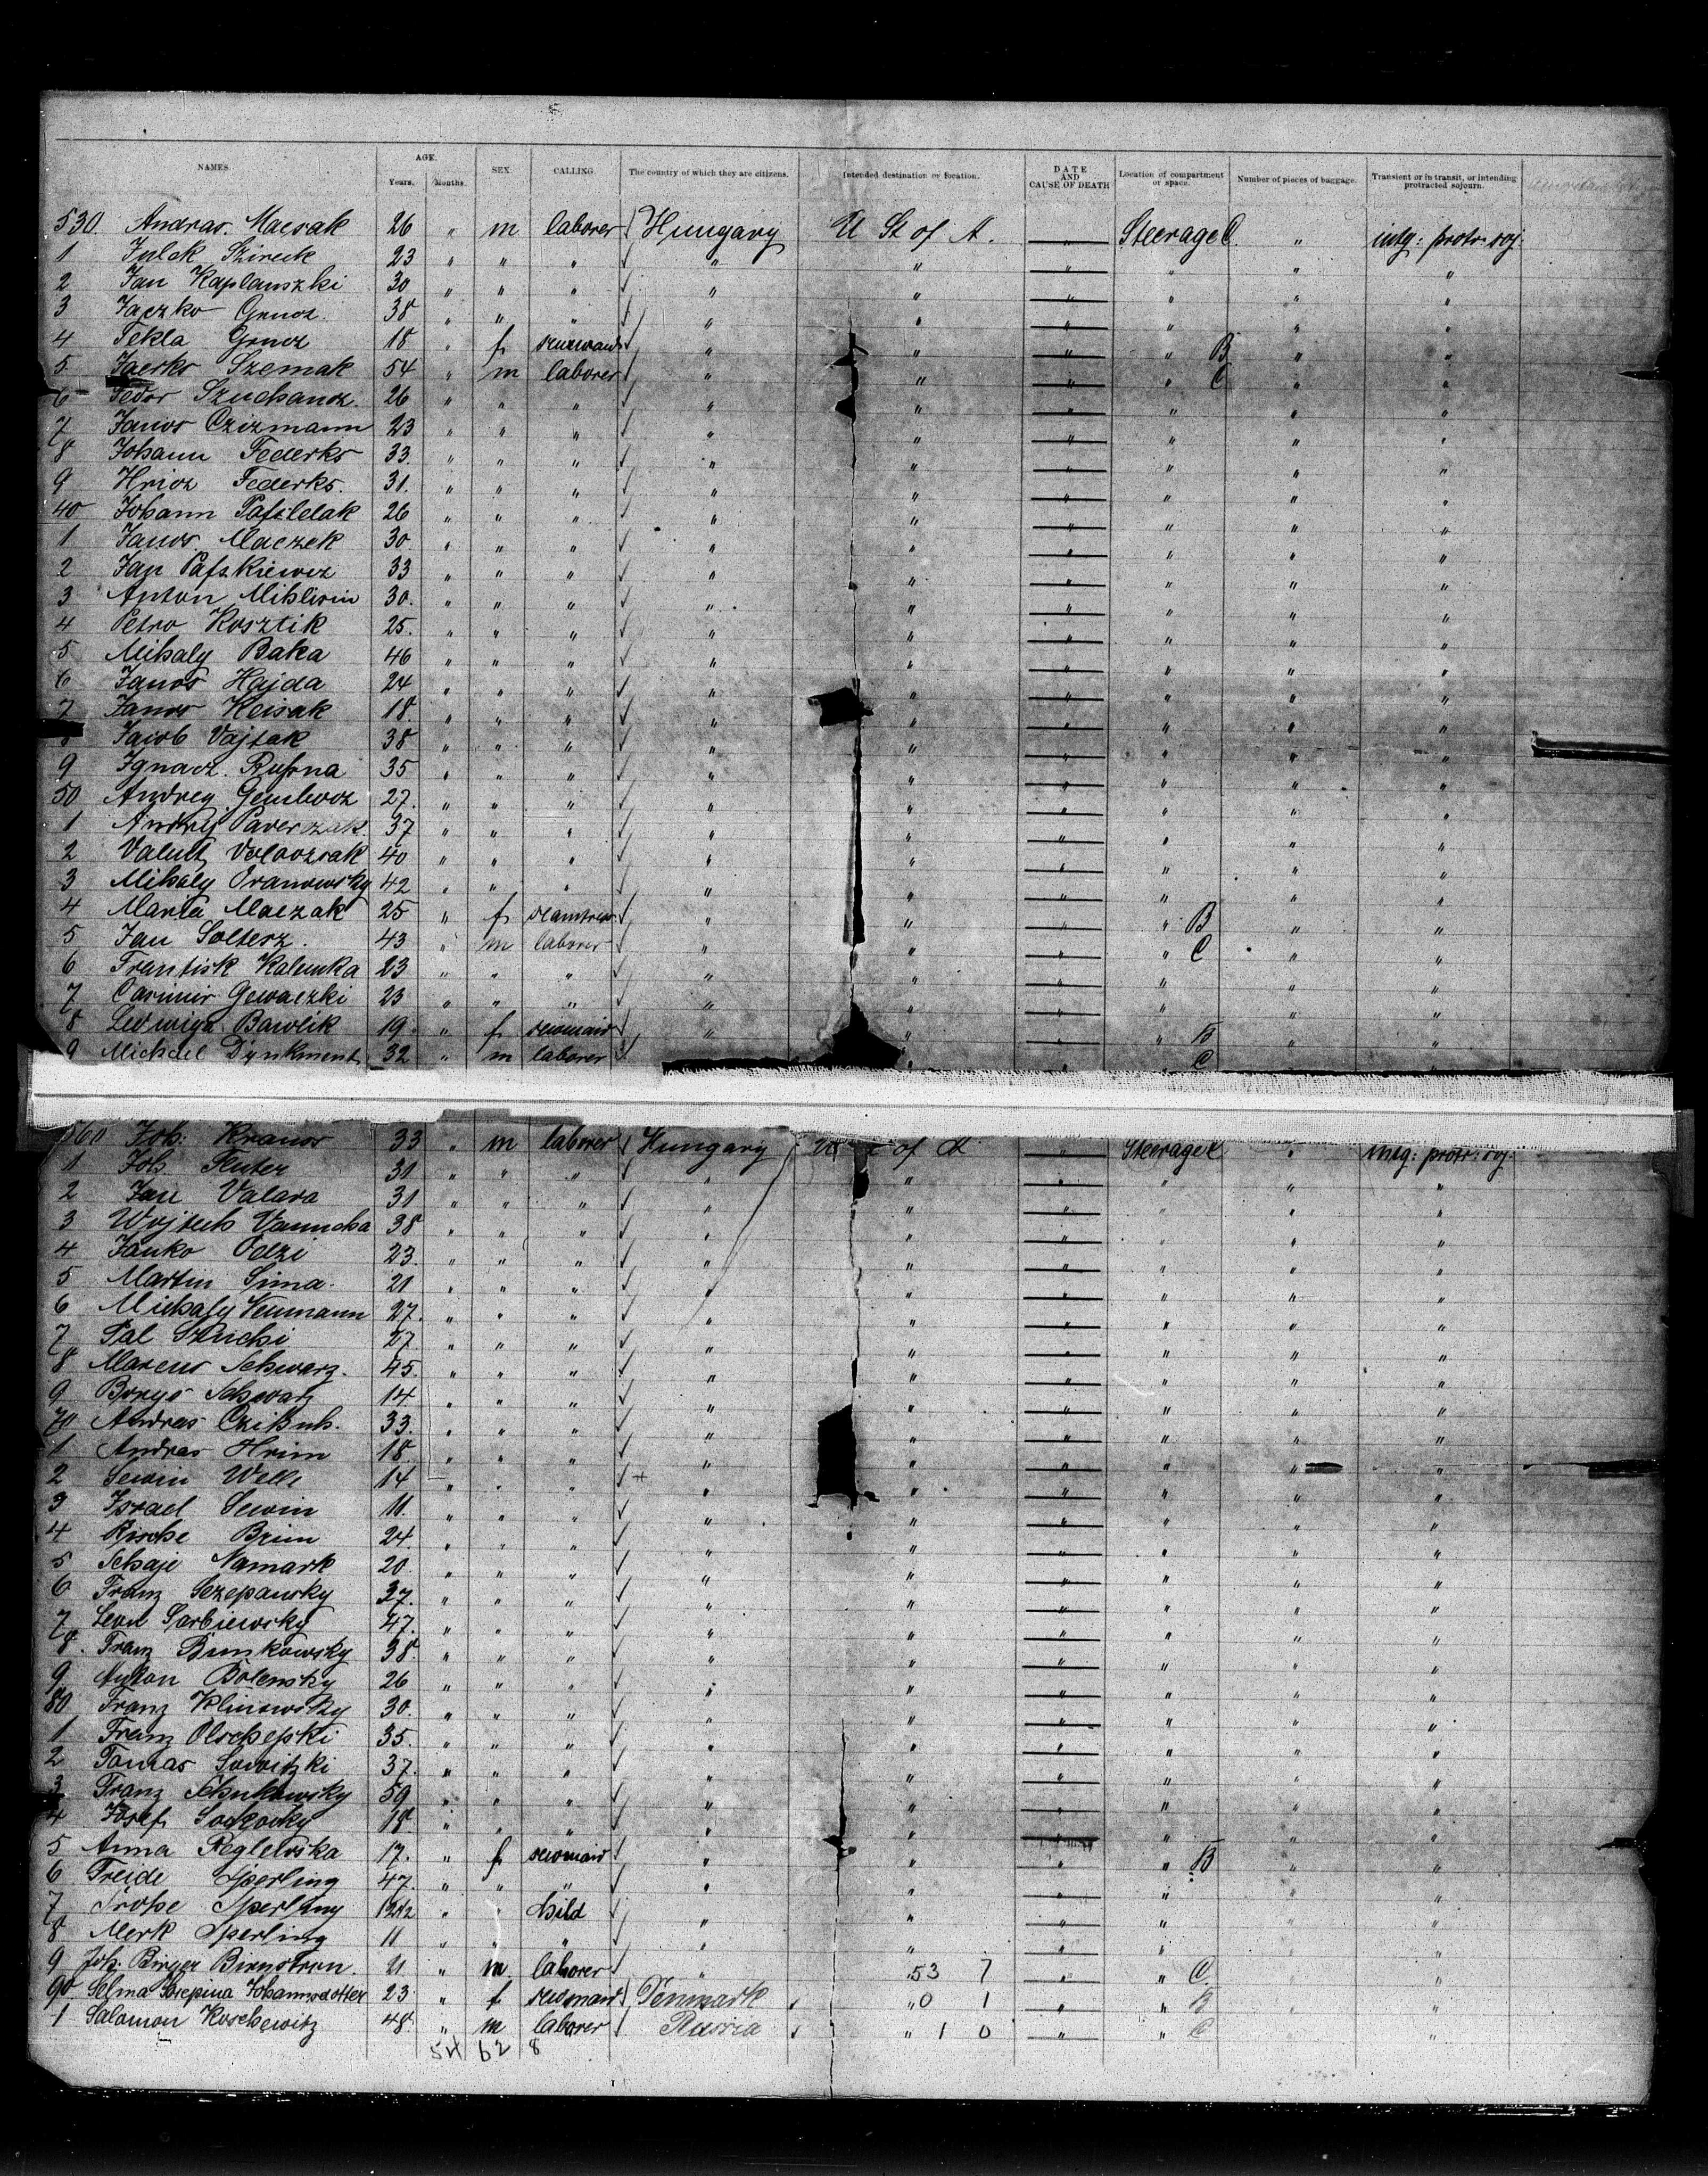 NAMES. AGE. Years. Months. SEX CALLING The country of which they are citizens. Intended destination or location. DATE AND CAUSE OF DEATH Location of compartment or space. Number of pieces of baggage. Transient or in transit, or intending protracted sojourn.
530. Andras Macsak 26 " m laborer Hungary U St of A. " Steerage C. " intg: protr: soj.
1 Julck Szireck 23 " " " " " " " "
2 Jan Kaplanszki 30 " " " " " " " "
3 Jaczko Gruoz. 38 " " " " " " " "
4 Tekla Gruoz 18 " f " " " " B " "
5 Jaerko Szemak 54 " m laborer " " " " C " "
6 Fedor Szuchanoz 26 " " " " " " " " "
7 Janos Czizmann 23 " " " " " " " " "
8 Johann Federko 33 " " " " " " " " "
9 Hrioz Federko. 31. " " " " " " " " "
40 Johann 26 " " " " " " " " "
1 Janos Maczek 30 " " " " " " " " "
2 Jan Pafskiewoz 33 " " " " " " " " "
3 Anton Miklisin 30. " " " " " " " " "
4 Petro Kosztik 25. " " " " " " " " "
5 Mihaly Baka 46 " " " " " " " " "
6 Janos Hajda 24 " " " " " " " " "
7 Janos Keisak 18 " " " " " " " " "
8 Jacob Vajtak 38 " " " " " " " " "
9 Ignacz Rufsna 35 " " " " " " " " "
50 Andrey 27. " " " " " " " " "
1 Andrey Paverozak 37 " " " " " " " " "
2 40 " " " " " " " " "
3 Mihaly Oranowsky 42 " " " " " " " " "
4 Maria Maczak 25 " f seamtress " " " " B " "
5 Jan Solterz. 43 " m laborer " " " " C " "
6 Frantisk Kalenka 23 " " " " " " " " "
7 Casimir Gewaczki 23 " " " " " " " " "
8 Ledwiga Bawlik 19 " f sewmaid " " " " B " "
9 Michael Dynkment 32 " m laborer " " C "
560 Joh. Kranos 33 " m laborer Hungary of A " Steerage C " intg: protr: soj.
1 Joh. Fluter 31 " " " " " " " " "
2 Jan Valara 31 " " " " " " " " "
3 Wojtech Vanucha 38 " " " " " " " " "
4 Janko Odzi 23. " " " " " " " " "
5 Martin Sima. 21 " " " " " " " " "
6 Michaly Neumann 27. " " " " " " " " "
7 Pal Szuchi 27. " " " " " " " " "
8 Marcus Schwarz. 45. " " " " " " " " "
9 Schwarz 14 " " " " " " " " "
70 Andras 33. " " " " " " " " "
1 Andras Hrim 18. " " " " " " " " "
2 Sewin Welk 14 " " " + " " " " " "
3 Israel Sewin 11. " " " " " " " " "
4 Rische Brim 24. " " " " " " " " "
5 Schaje Namark 20 " " " " " " " " "
6 Franz Sezepansky 37. " " " " " " " " "
7 Leon Sarbiewsky 47. " " " " " " " " "
8. Franz Bunkowsky 38. " " " " " " " " "
9 Anton Bolensky 26 " " " " " " " " "
80 Franz Klinowsky 30. " " " " " " " " "
1 Franz Olschefski 35. " " " " " " " " "
2 Tomas Sowitzki 37. " " " " " " " " "
3 Franz Schukowsky 59 " " " " " " " " "
4 Josef Sockocky 18 " " " " " " " " "
5 Anna Peglewska 17. " f sewmaid " " " " B " "
6 Freide Sperling 47. " " " " " " " " "
7 Sperling " " child " " " " " "
8 Merk Sperling 11 " " " " " " " " "
9 Joh. Birger 21 " m. laborer " " 53 7 " " C. " "
90 Selma Josepina Johannsdotter 23 " f sewmaid Denmark " 0 1 " " B " "
1 Salomon Koschewitz 48. " m laborer Russia " 1 0 " C " "
54 62 8